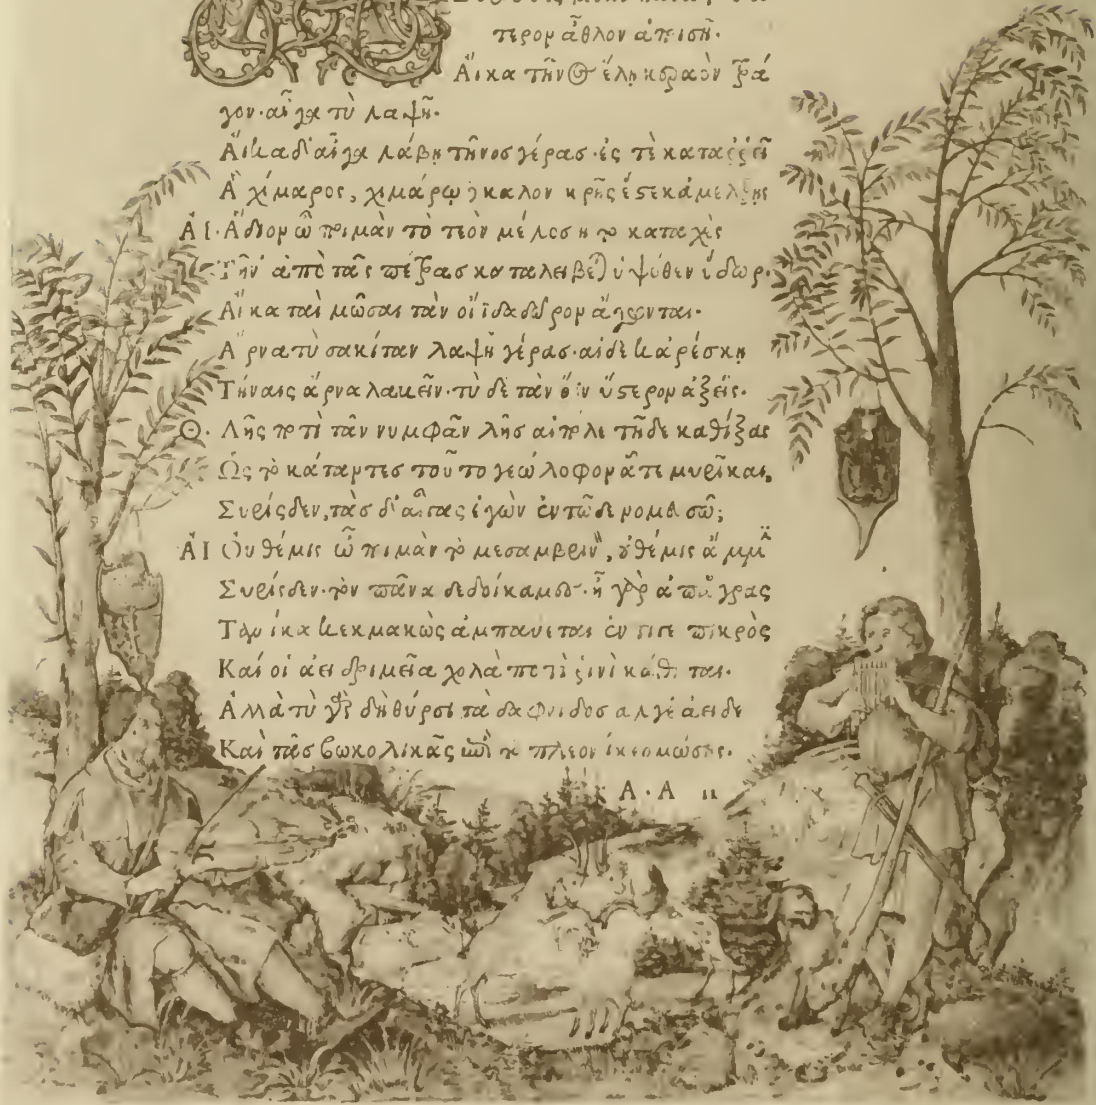 τερον ἆθλον ἀποισῇ·
Αἴκα τῆνος ἕλῃ κεραὸν τρά
γον· αἶγα τὺ λαψῇ·
Αἴκα δ' αἶγα λάβῃ τῆνοσ γέρασ· ἐς τὲ καταρρεῖ
Ἁ χίμαρος, χιμάρω καλον κρῆς ἔστε κ' ἀμέλξῃς
ΑΙ· Ἅδιον ὦ ποιμὰν τὸ τεὸν μέλοσ ἢ τὸ καταχὲς
Τῆν' ἀπὸ τᾶς πέτρας καταλείβεται ὑψόθεν ὕδωρ·
Αἴκα ταὶ μῶσαι τὰν οἴϊδα δῶρον ἄγωνται·
Ἄρνα τὺ σακίταν λαψῇ γέρασ· αἰ δέ κ' ἀρέσκῃ
Τήναις ἄρνα λαβεῖν· τὺ δὲ τὰν ὄϊν ὕστερον ἀξεῖς·
Θ· Λῇς ποτὶ τᾶν νυμφᾶν λῇσ αἰπόλε τῇδε καθίξας
Ὡς τὸ κάταντεσ τοῦτο γεώλοφον ᾇτε μυρῖκαι,
Συρίσδεν, τὰσ δ' αἶγας ἐγὼν ἐν τῷδε νομευσῶ;
ΑΙ Οὐ θέμις ὦ ποιμὰν τὸ μεσαμβρινὸν, οὐ θέμις ἄμμιν
Συρίσδεν· τὸν πᾶνα δεδοίκαμες· ἦ γὰρ ἀπ' ἄγρας
Τανίκα κεκμακὼς ἀμπαύεται ἐντι γε πικρὸς
Καί οἱ ἀεὶ δριμεῖα χολὰ ποτὶ ῥινὶ κάθηται·
Ἀλλὰ τὺ γὰρ δὴ θύρσι τὰ δάφνιδοσ ἄλγε' ἄειδε
Καὶ τᾶσ βωκολικᾶς ἐπὶ τὸ πλέον ἵκεο μώσης·
A · A ıı